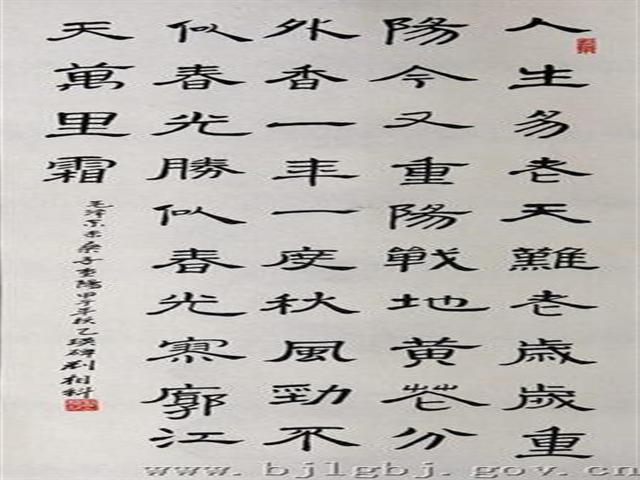 人生易老天難老歲歲重
陽今又重陽戰地黃花分
外香一年一度秋風勁不
似春光勝似春光寥廓江
天萬里霜
毛澤東采桑子重陽甲午年秋乙瑛碑
www.bjlgbj.gov.cn